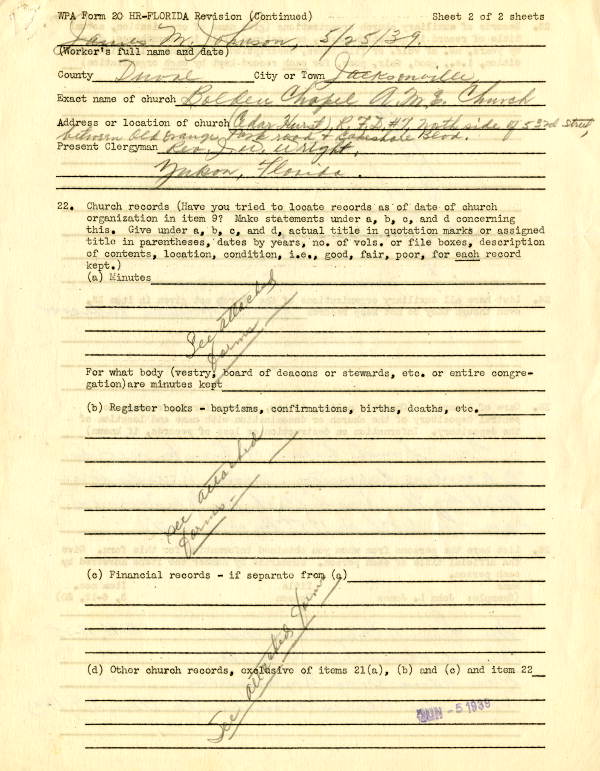 WPA Form 20 HR-FLORIDA Revision (Continued) Sheet 2 of 2 sheets
James M. Johnson, 5/25/39
(Worker's full name and date)
County Duval City or Town Jacksonville,
Exact name of church Bolden Chapel A.M.E. Church
Address or location of church (Cedar Hurst) R.F.D. #7, North side of 53rd Street,
between Old Orange Park road & Lakeshore Blvd.
Present Clergyman Rev. J.W. Wright,
Yukon, Florida.
22. Church records (Have you tried to locate records as of date of church
organization in item 9? Make statements under a, b, c, and d concerning
this. Give under a, b, c, and d, actual title in quotation marks or assigned
title in parentheses, dates by years, no. of vols. or file boxes, description
of contents, location, condition, i.e., good, fair, poor, for each record
kept.)
(a) Minutes
See attached
forms
For what body (vestry, board of deacons or stewards, etc. or entire congre-
gation)are minutes kept
(b) Register books - baptisms, confirmations, births, deaths, etc.
See attached
forms-
(c) Financial records - if separate from (a)
See attached forms
(d) Other church records, exclusive of items 21(a), (b) and (c) and item 22
JUN -5 1939